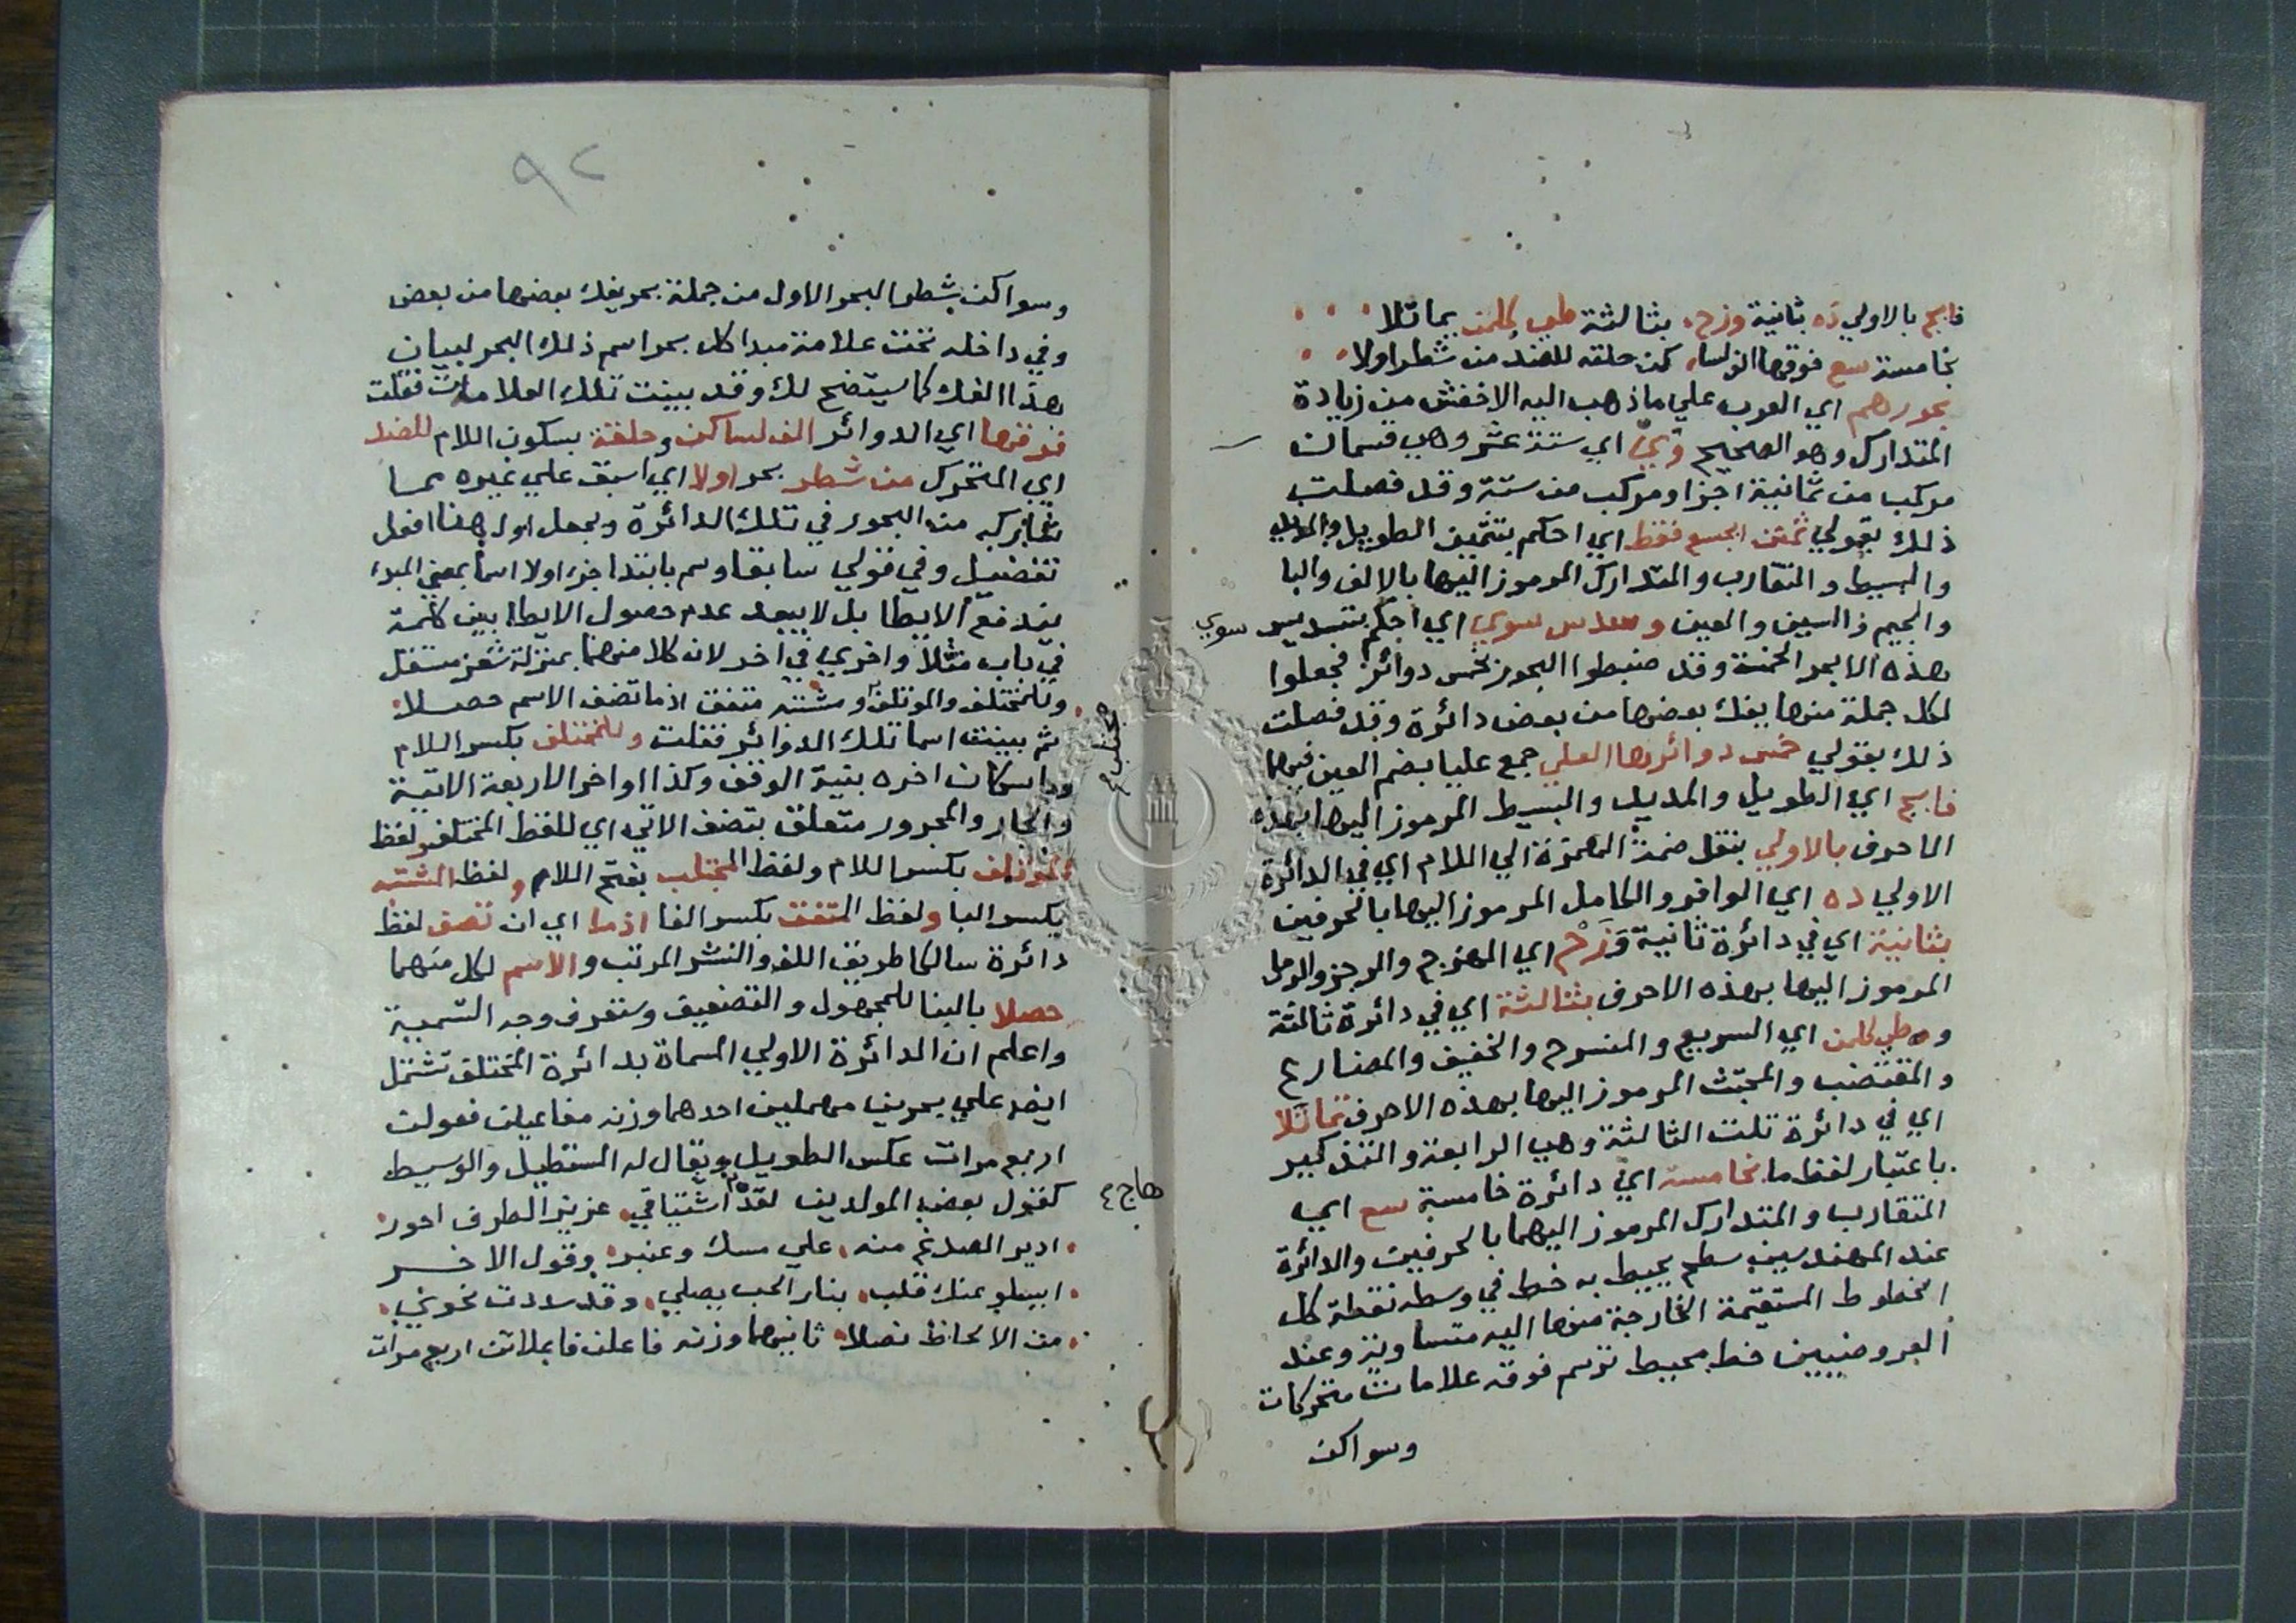 فابج بالاولي ده بثانية وزح بثالثة طي كلمن بماتلا
بخامسة سع فوقها الف لساكن حلقه للضد من شطر اولا
بحورهم اي العرب علي ما ذهب اليه الاخفش من زيادة
المتدارك وهو الصحيح وَيّ اي ستة عشر وهي قسمان
مركب من ثمانية اجزا ومركب من ستة وقد فصلت
ذلك بقولي ثمّن ابجسع فقط اي احكم بتثمين الطويل والمديد
والبسيط والمتقارب والمتدارك المرموز اليها بالالف والبا
والجيم والسين والعين وسدس سوي اي احكم بتسديس سوي
هذه الابحر الخمسة وقد ضبطوا البحور بخمس دوائر فجعلوا
لكل جملة منها يفك بعضها من بعض دائرة وقد فصلت
ذلك بقولي خمس دوائرها العلي جمع عليا بضم العين فيهما
فابج اي الطويل والمديد والبسيط المرموز اليها بهذه
الاحرف بالاولي بنقل ضمة الهمزة الي اللام اي في الدائرة
الاولي ده اي الوافر والكامل المرموز اليهما بالحرفين
بثانية اي في دائرة ثانية وَزَحْ اي الهزج والرجز والرمل
المرموز اليها بهذه الاحرف بثالثة اي في دائرة ثالثة
وطي كلمن اي السريع والمنسرح والخفيف والمضارع
والمقتضب والمجتث المرموز اليها بهذه الاحرف بماتلا
اي في دائرة تلت الثالثة وهي الرابعة والتذكير
باعتبار لفظ ما بخامسة اي دائرة خامسة سع اي
المتقارب والمتدارك المرموز اليهما بالحرفين والدائرة
عند المهندسين سطح يحيط به خط في وسطه نقطة كل
الخطوط المستقيمة الخارجة منها اليه متساوية وعند
العروضيين خط محيط ترسم فوقه علامات متحركات
وسواكن
٩٢
وسواكن شطر البحر الاول من جملة بحر يفك بعضها من بعض
وفي داخله تحت علامة مبدا كل بحر اسم ذلك البحر لبيان
هذا الفك كما سيتضح لك وقد بينت تلك العلامات فقلت
فوقها اي الدوائر الف لساكن وحلقة بسكون اللام للضد
اي المتحرك من شطر بحر اولا اي اسبق علي غيره مما
شاركه من البحور في تلك الدائرة وبجعل اول هنا افعل
تفضيل وفي قولي سابقا وسم بابتدا جزء اولا اسما بمعني المبدء
يندفع الايطا بل لا يبعد عدم حصول الايطا بين كلمة
في باب مثلا واخري في اخر لان كلا منهما بمنزلة شعر مستقل
وللمختلف والموتلف ومشتبه متفق اذ ما تضف الاسم حصلا
ثم بينت اسما تلك الدوائر فقلت وللمختلف بكسر اللام
واسكان اخره بنية الوقف وكذا اواخر الاربعة الاتية
والجار والمجرور متعلق بتضف الاتي اي للفظ المختلف ولفظ
الموتلف بكسر اللام ولفظ المجتلب بفتح اللام ولفظ المشتبه
بكسر البا ولفظ المتفق بكسر الفا اذ ما اي ان تضف لفظ
دائرة سالكا طريق اللف والنشر المرتب والاسم لكل منهما
حصلا بالبنا للمجهول والتضعيف وستعرف وجه التسمية
واعلم ان الدائرة الاولي المسماة بدائرة المختلف تشتمل
ايضا علي بحرين مهملين احدهما وزنه مفاعيلن فعولن
اربع مرات عكس الطويل ويقال له المستطيل والوسيط
كقول بعض المولدين لقد هاج اشتياقي عزيز الطرف احور
ادير الصدغ منه علي مسك وعنبر وقول الاخر
ايسلو عنك قلب بنار الحب يصلي وقد سددت نحوي
من الالحاظ نصلا ثانيهما وزنه فاعلن فاعلاتن اربع مرات
هاج ع